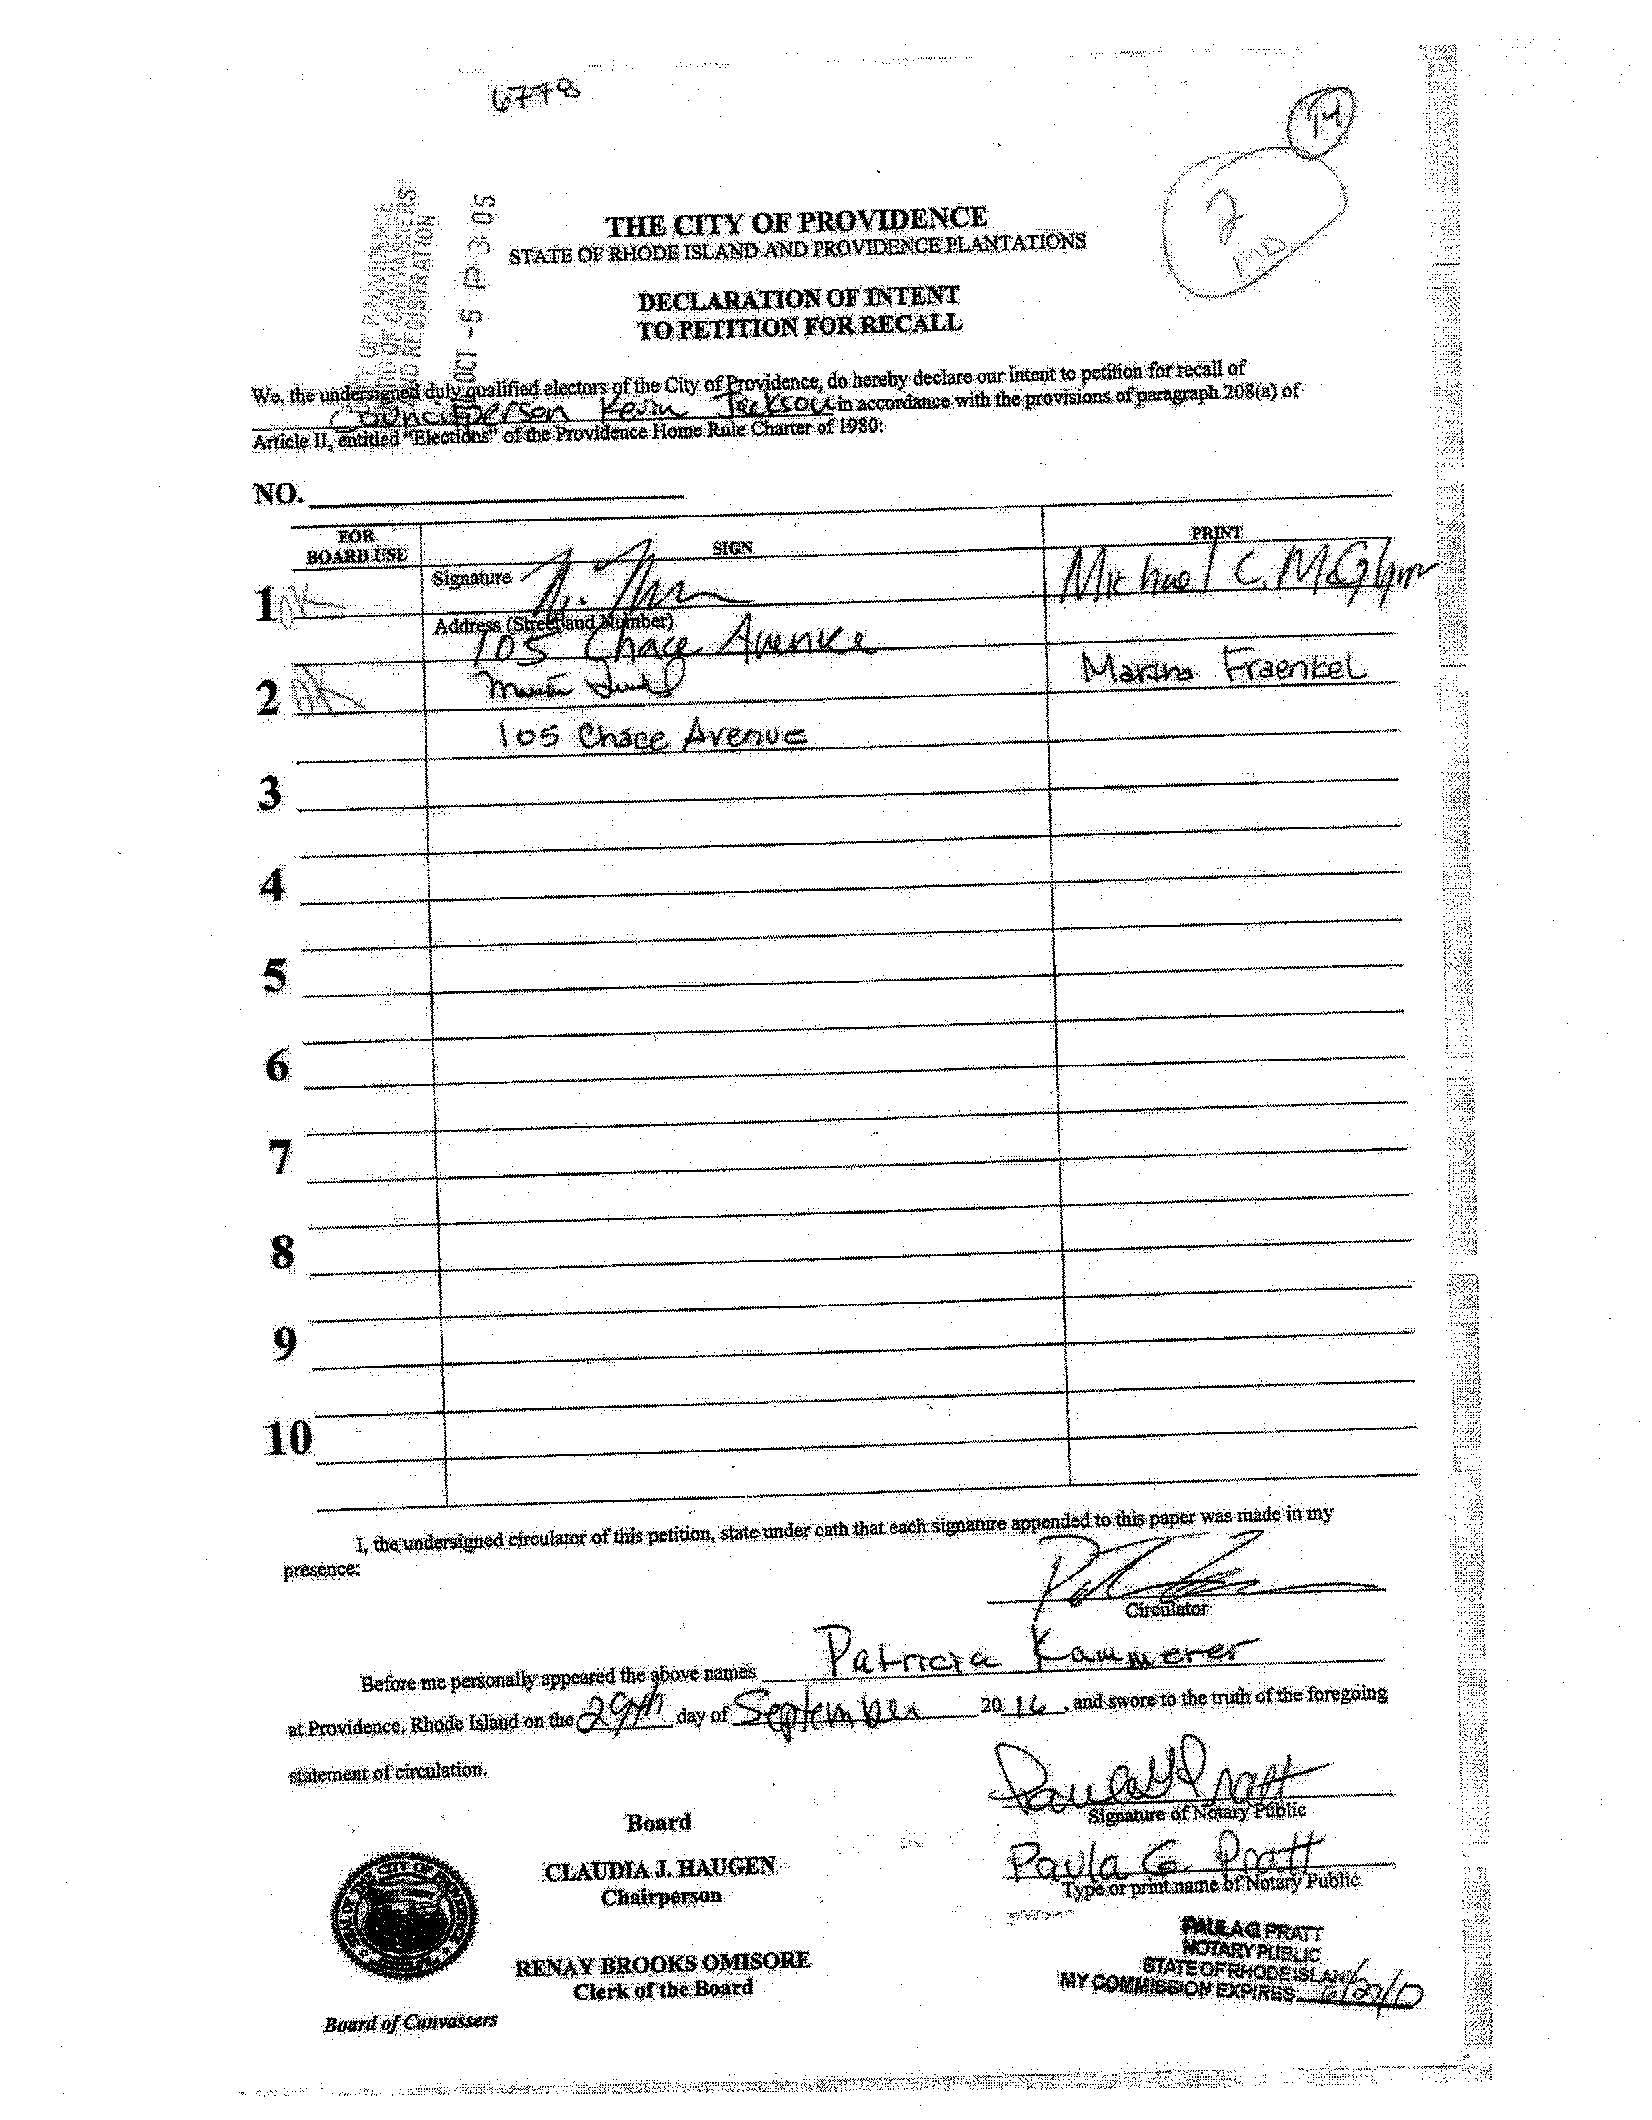 6778
14
2
MD
OCT -5 P 3:05
THE CITY OF PROVIDENCE
STATE OF RHODE ISLAND AND PROVIDENCE PLANTATIONS
DECLARATION OF INTENT
TO PETITION FOR RECALL
We, the undersigned duly qualified electors of the City of Providence, do hereby declare our intent to petition for recall of
Councilperson Kevin Jackson in accordance with the provisions of paragraph 208(a) of
Article II, entitled "Elections" of the Providence Home Rule Charter of 1980:
NO.
FOR BOARD USE SIGN PRINT
1 Signature Michael C. McGlynn
Address (Street and Number)
105 Chace Avenue
2 Marina Fraenkel
105 Chace Avenue
3
4
5
6
7
8
9
10
I, the undersigned circulator of this petition, state under oath that each signature appended to this paper was made in my
presence:
Circulator
Before me personally appeared the above names Patricia Kammerer
at Providence, Rhode Island on the 29th day of September 2016, and swore to the truth of the foregoing
statement of circulation.
Paula G Pratt
Signature of Notary Public
Paula G Pratt
Type or print name of Notary Public
Board
CLAUDIA J. HAUGEN
Chairperson
RENAY BROOKS OMISORE
Clerk of the Board
Board of Canvassers
PAULA G PRATT
NOTARY PUBLIC
STATE OF RHODE ISLAND
MY COMMISSION EXPIRES